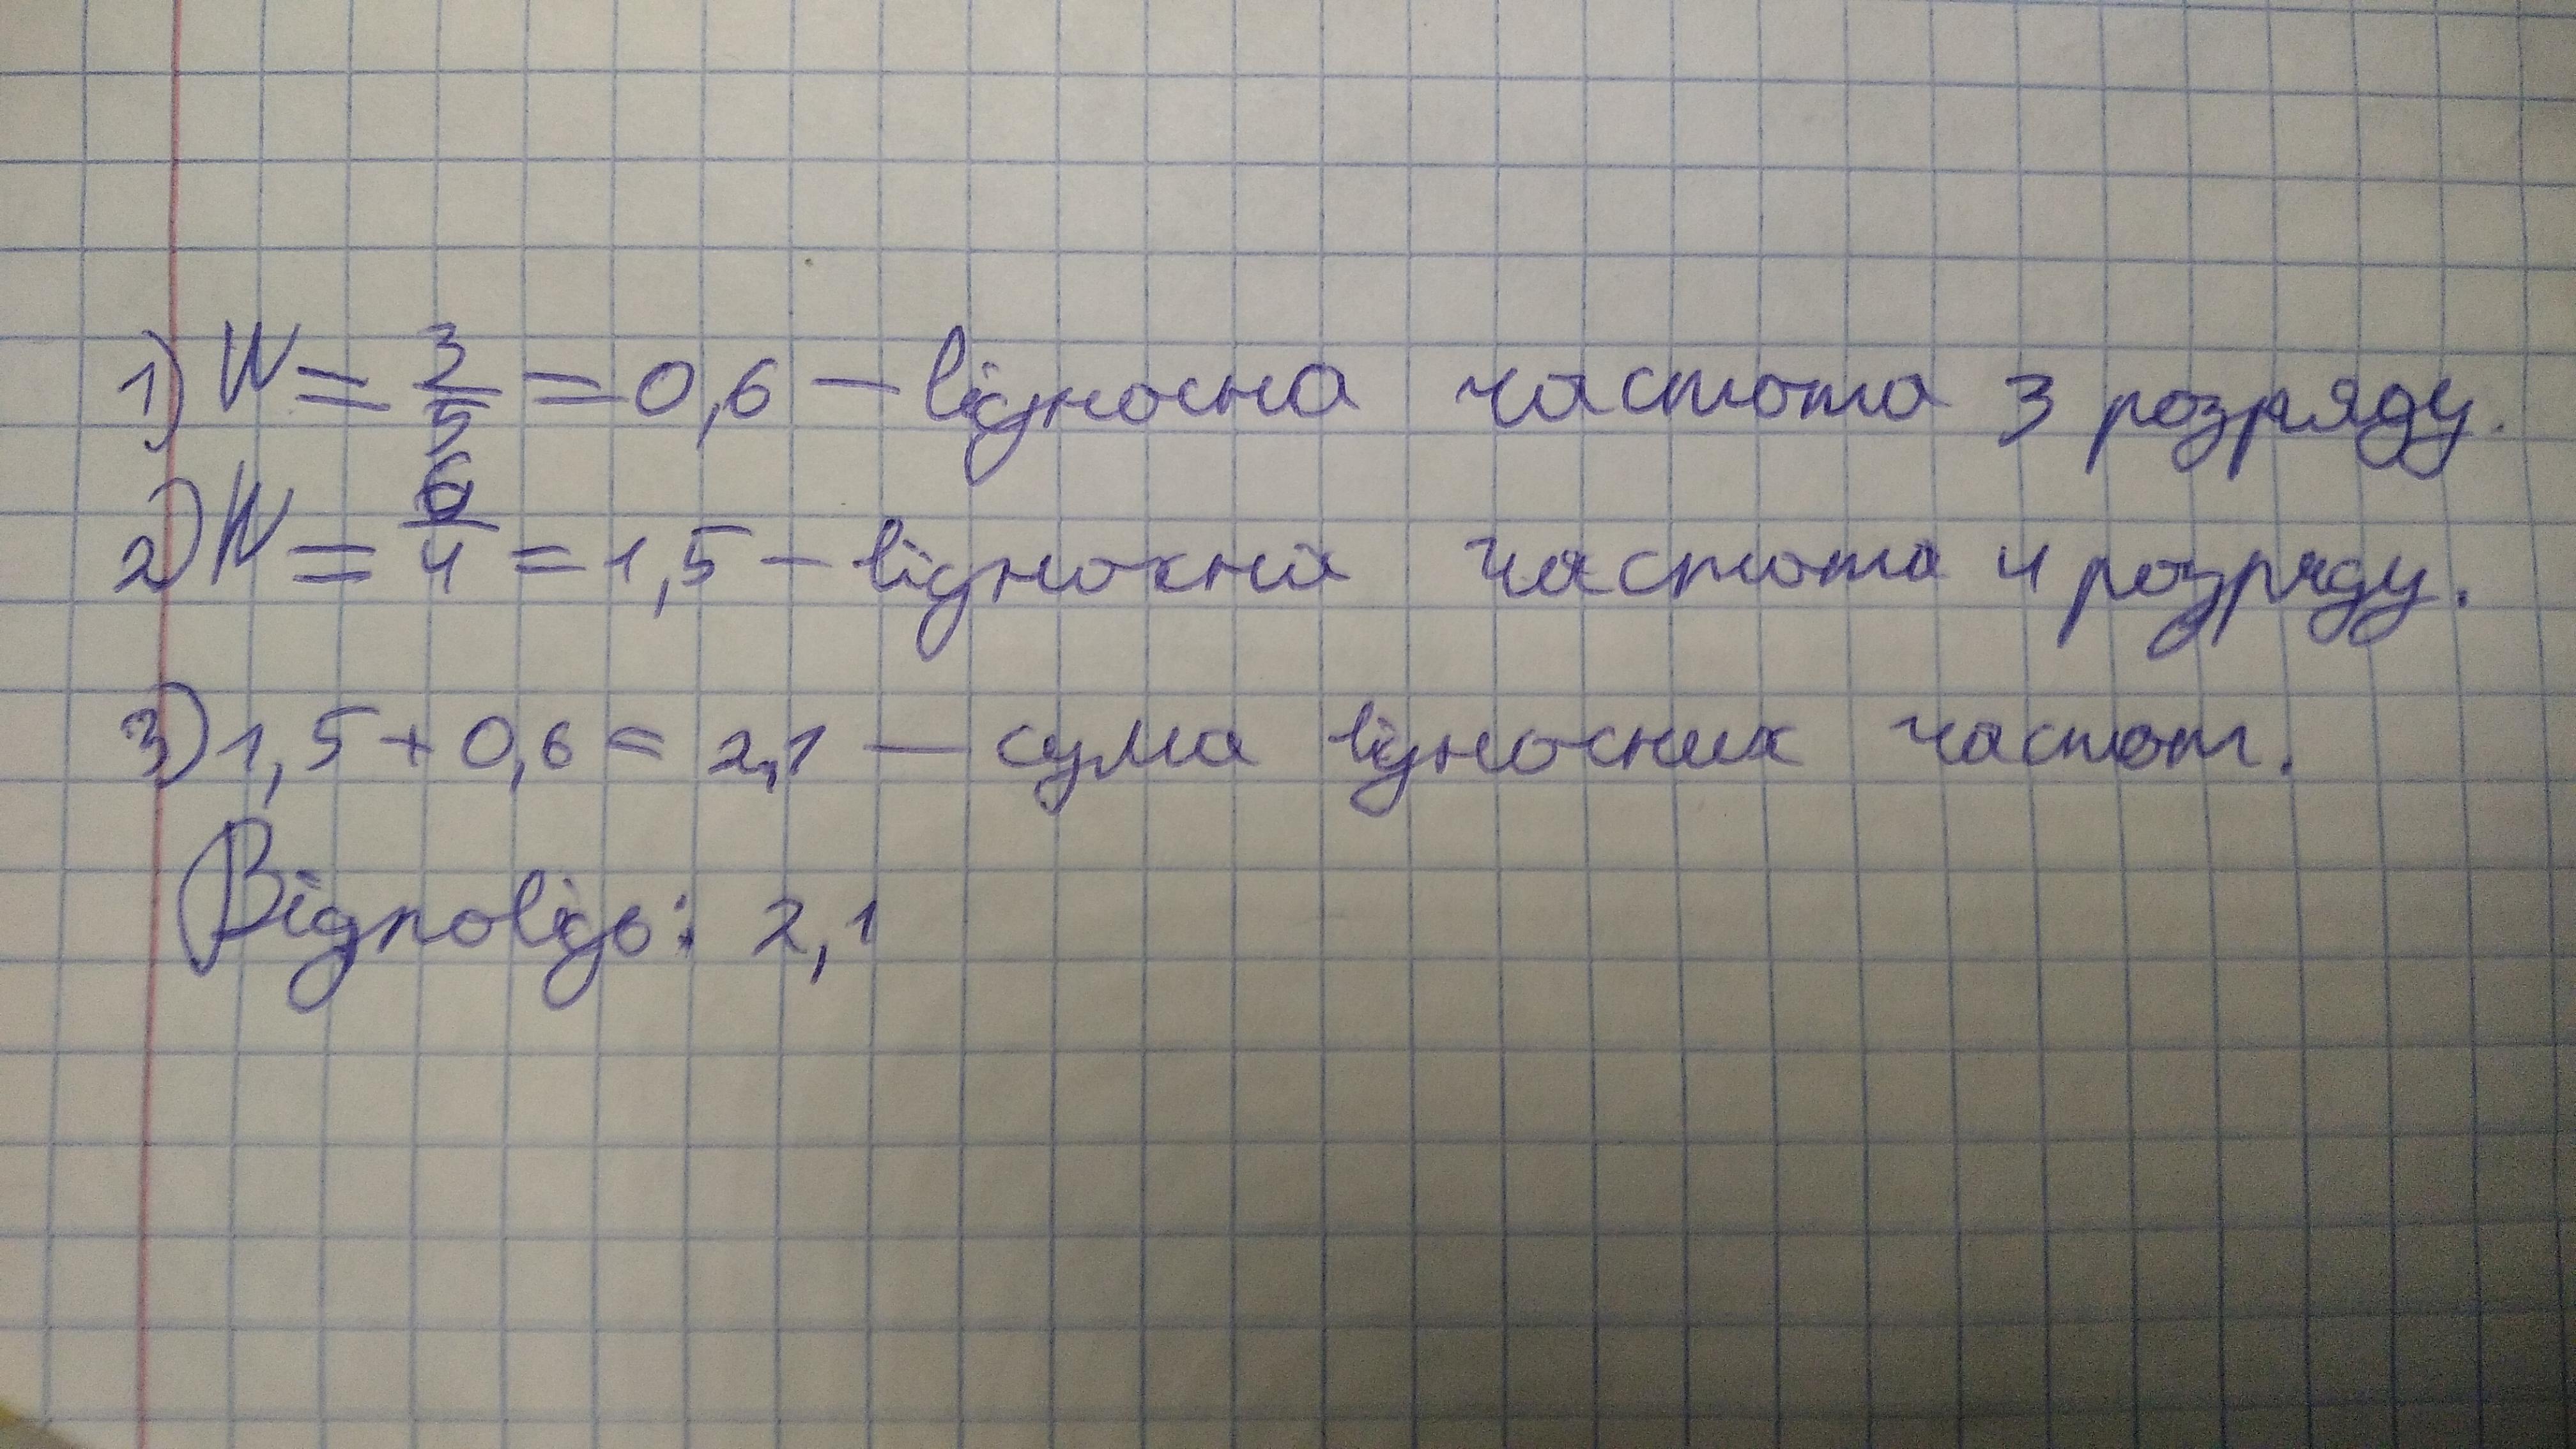 1) W = 3/5 = 0,6 – відносна частота 3 розряду.
2) W = 6/4 = 1,5 – відносна частота 4 розряду.
3) 1,5 + 0,6 = 2,1 – сума відносних частот.
Відповідь: 2,1